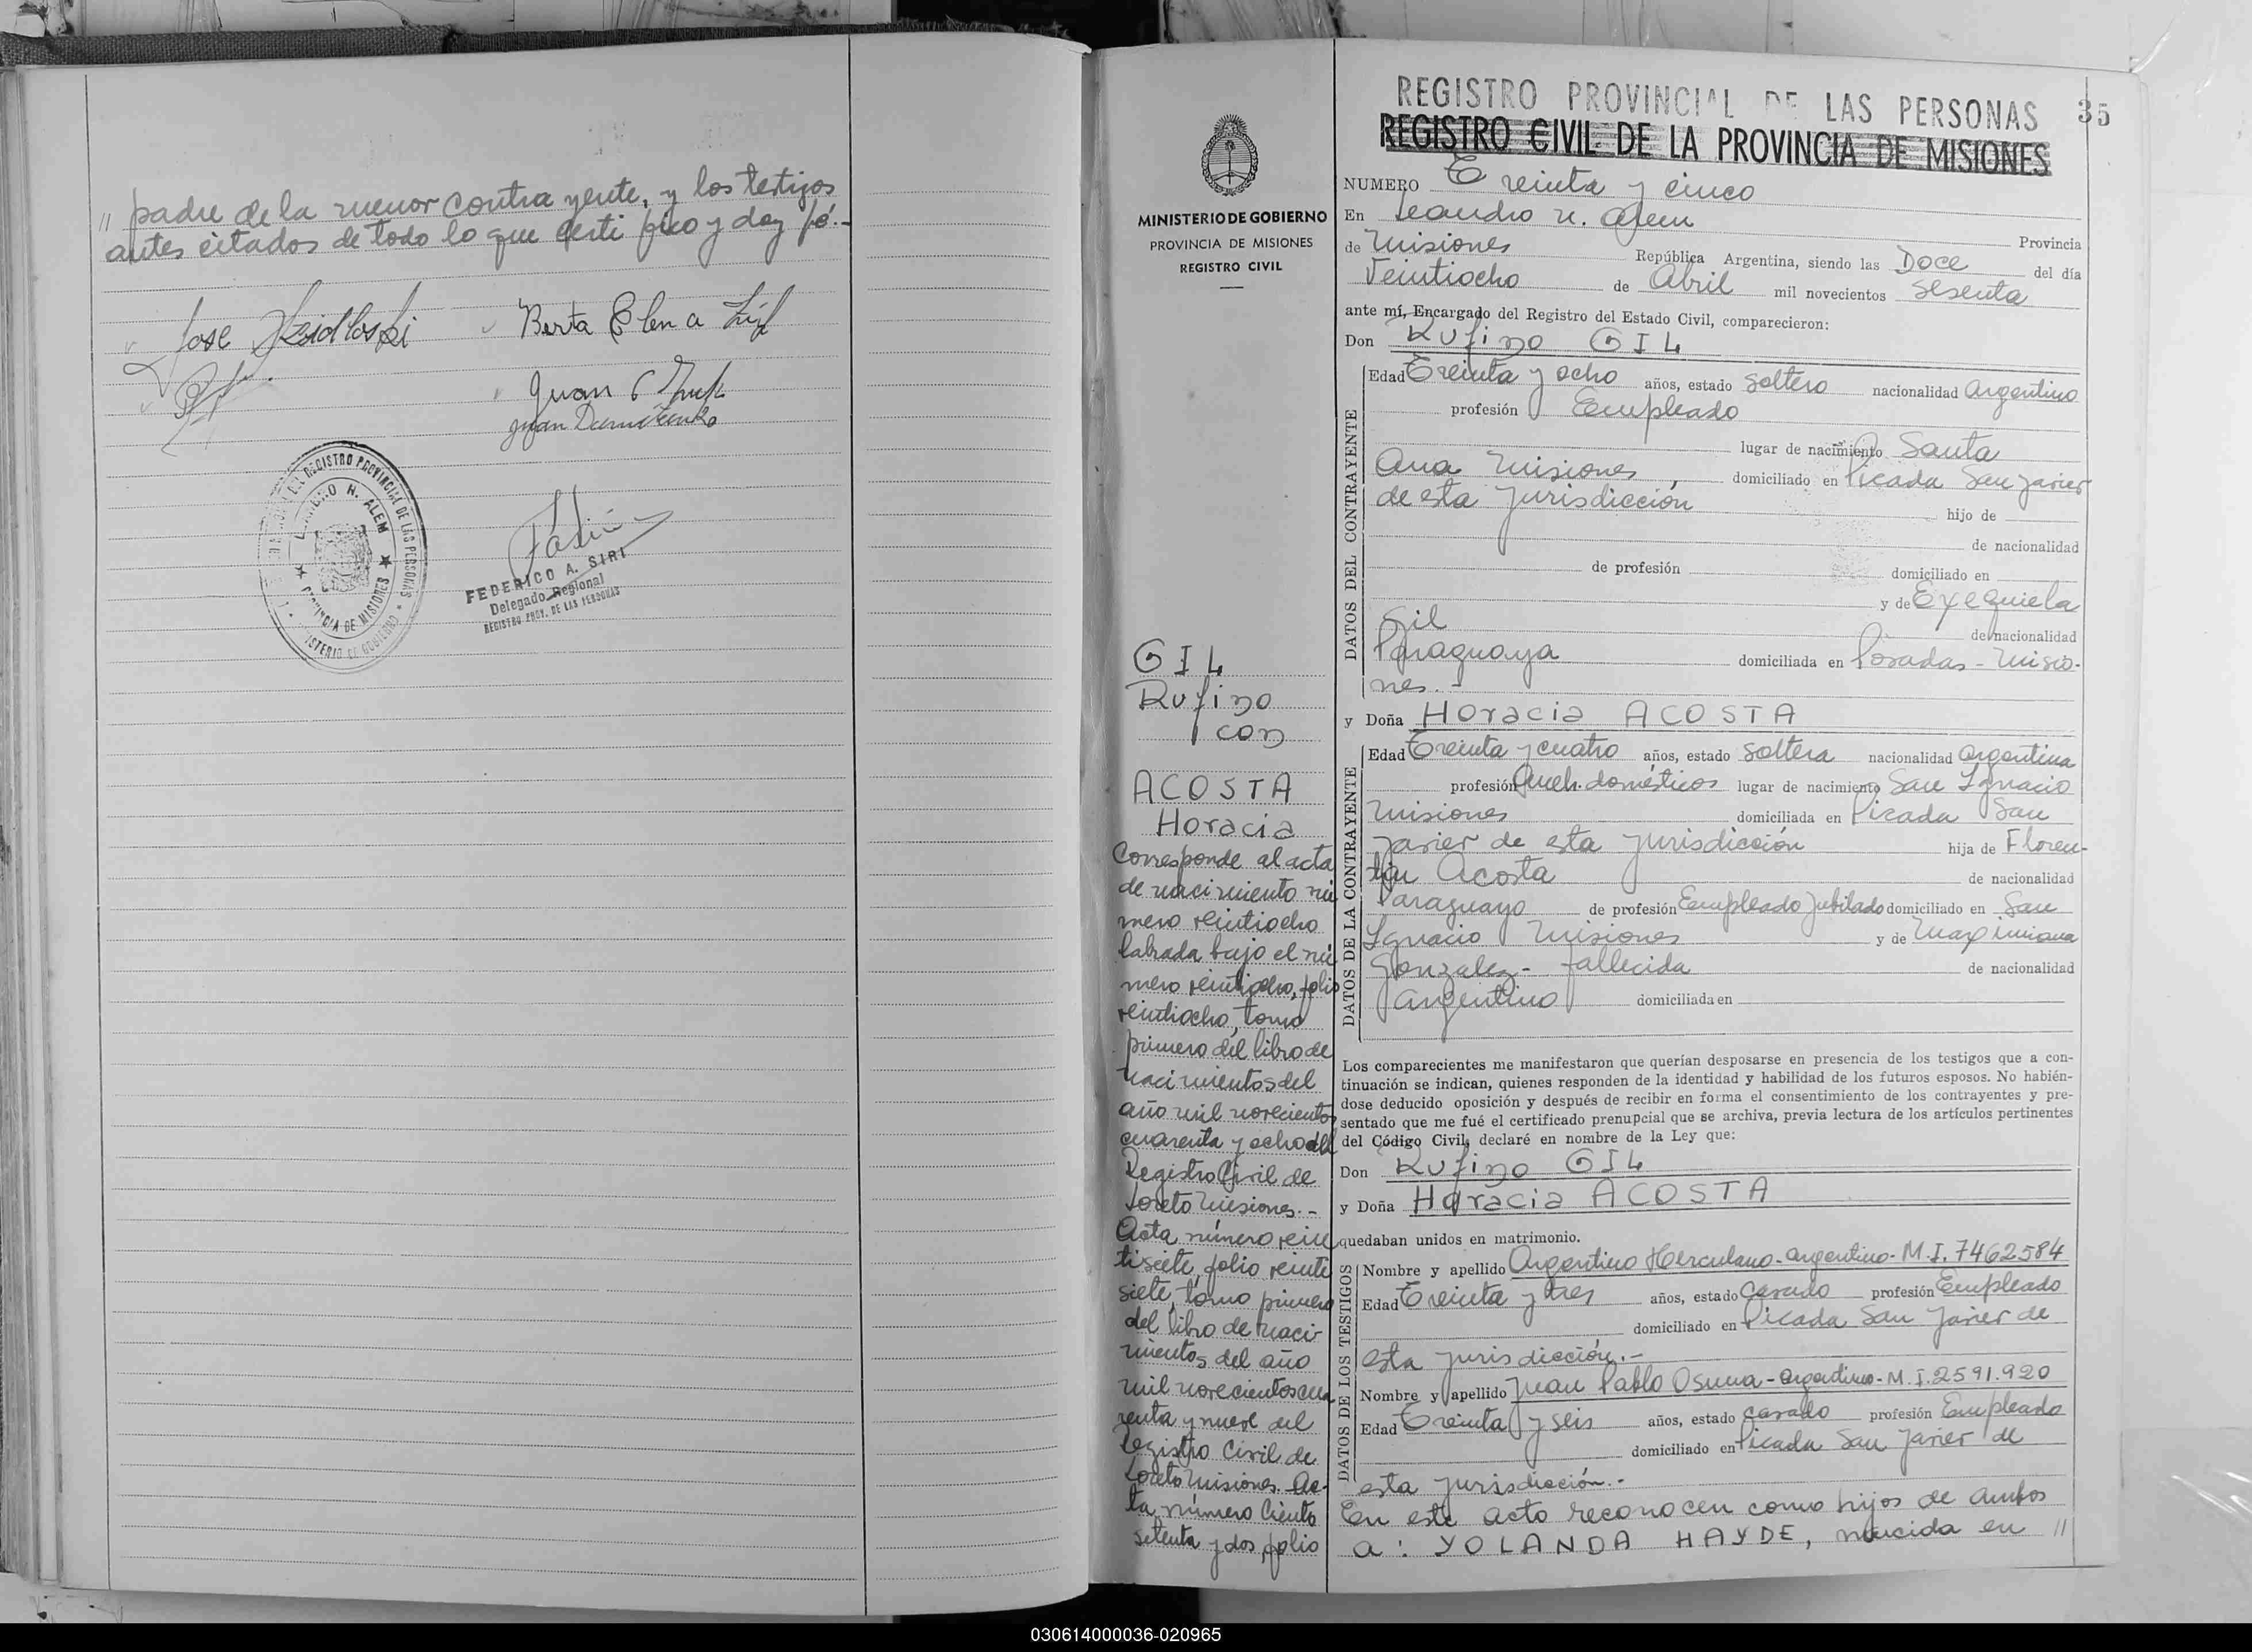 // padre de la menor contrayente, y los testigos
antes citados de todo lo que certifico y doy fé.-
Jose
Berta Elena
Juan
Juan
REGISTRO PROVINCIAL DE LAS PERSONAS
LEANDRO N. ALEM
PROVINCIA DE MISIONES
MINISTERIO DE GOBIERNO
FEDERICO A. SIRI
Delegado Regional
REGISTRO PROV. DE LAS PERSONAS
MINISTERIO DE GOBIERNO
PROVINCIA DE MISIONES
REGISTRO CIVIL
GIL
Rufino
con
ACOSTA
Horacia
Corresponde al acta
de nacimiento nú
mero veintiocho
labrada bajo el nú
mero veintiocho, folio
veintiocho, tomo
primero del libro de
nacimientos del
año mil novecientos
cuarenta y ocho del
Registro Civil de
Loreto Misiones.-
Acta número vein
tisiete, folio veinte
siete, tomo primero
del libro de naci-
mientos del año
mil novecientos cua
renta y nueve del
Registro Civil de
Loreto Misiones. Ac-
ta número Ciento
setenta y dos, folio
REGISTRO PROVINCIAL DE LAS PERSONAS 35
REGISTRO CIVIL DE LA PROVINCIA DE MISIONES
NUMERO Treinta y cinco
En Leandro N. Alem
Provincia
de Misiones República Argentina, siendo las Doce del día
Veintiocho de Abril mil novecientos sesenta
ante mí, Encargado del Registro del Estado Civil, comparecieron:
Don Rufino GIL
DATOS DEL CONTRAYENTE
Edad Treinta y ocho años, estado soltero nacionalidad Argentino
profesión Empleado
lugar de nacimiento Santa
Ana Misiones, domiciliado en Picada San Javier
de esta Jurisdicción hijo de
de nacionalidad
de profesión domiciliado en
y de Exequiela
Gil de nacionalidad
Paraguaya domiciliada en Posadas - Misio-
nes.-
y Doña Horacia ACOSTA
DATOS DE LA CONTRAYENTE
Edad Treinta y cuatro años, estado soltera nacionalidad Argentina
profesión Queh. domésticos lugar de nacimiento San Ignacio
Misiones domiciliada en Picada San
Javier de esta Jurisdicción hija de Floren-
tin Acosta de nacionalidad
Paraguayo de profesión Empleado Jubilado domiciliado en San
Ignacio Misiones y de Maximiana
Gonzalez - fallecida de nacionalidad
Argentino domiciliada en
Los comparecientes me manifestaron que querían desposarse en presencia de los testigos que a con-
tinuación se indican, quienes responden de la identidad y habilidad de los futuros esposos. No habién-
dose deducido oposición y después de recibir en forma el consentimiento de los contrayentes y pre-
sentado que me fué el certificado prenupcial que se archiva, previa lectura de los artículos pertinentes
del Código Civil, declaré en nombre de la Ley que:
Don Rufino GIL
y Doña Horacia ACOSTA
quedaban unidos en matrimonio.
DATOS DE LOS TESTIGOS
Nombre y apellido Argentino Herculano - Argentino - M.I. 7462584
Edad Treinta y tres años, estado Casado profesión Empleado
domiciliado en Picada San Javier de
esta jurisdicción.-
Nombre y apellido Juan Pablo Osuna - Argentino - M.I. 2591.920
Edad Treinta y seis años, estado casado profesión Empleado
domiciliado en Picada San Javier de
esta jurisdicción.-
En este acto reconocen como hijos de ambos
a: YOLANDA HAYDE, nacida en //
030614000036-020965